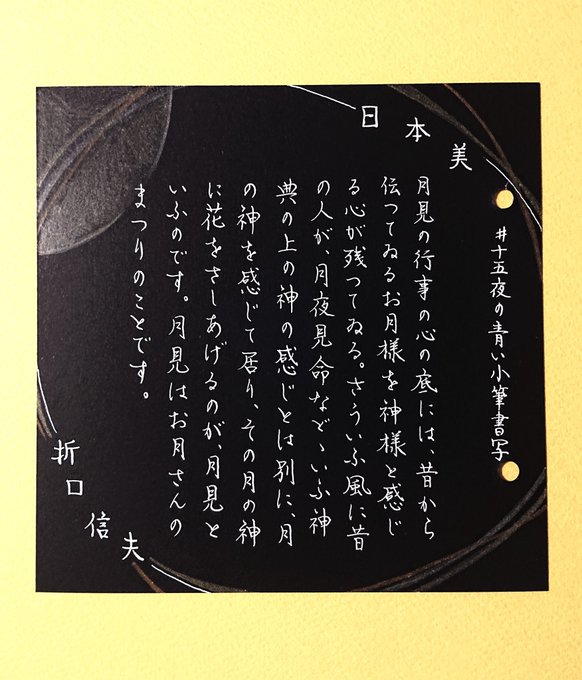 #十五夜の青い小筆書写
日本美
月見の行事の心の底には、昔から
伝つてゐるお月様を神様と感じ
る心が残つてゐる。さういふ風に昔
の人が、月夜見命などゝいふ神
典の上の神の感じとは別に、月
の神を感じて居り、その月の神
に花をさしあげるのが、月見と
いふのです。月見はお月さんの
まつりのことです。
折口信夫